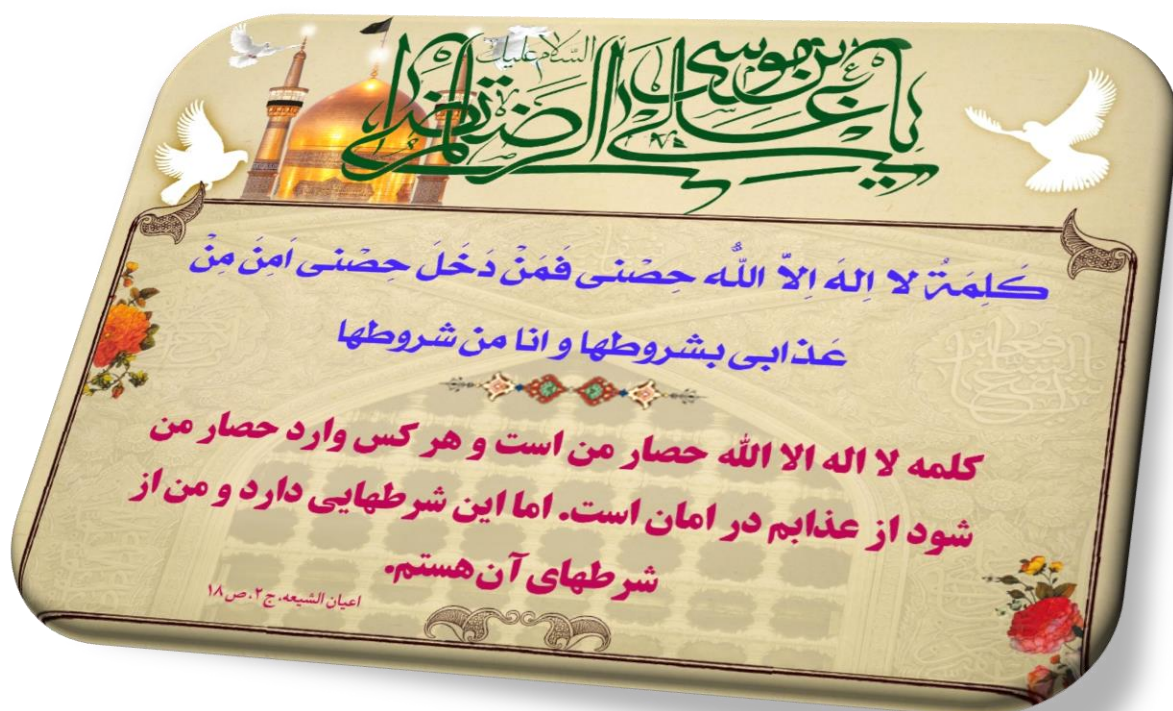 السّلام علیک
یا علی بن موسی الرضا المرتضی
کَلِمَةُ لا اِلهَ اِلاّ اللّه حِصْنی فَمَنْ دَخَلَ حِصْنی اَمِنَ مِنْ
عَذابی بشروطها و انا من شروطها
کلمه لا اله الا الله حصار من است و هر کس وارد حصار من
شود از عذابم در امان است. اما این شرطهایی دارد و من از
شرطهای آن هستم.
اعیان الشیعه، ج ۲، ص ۱۸